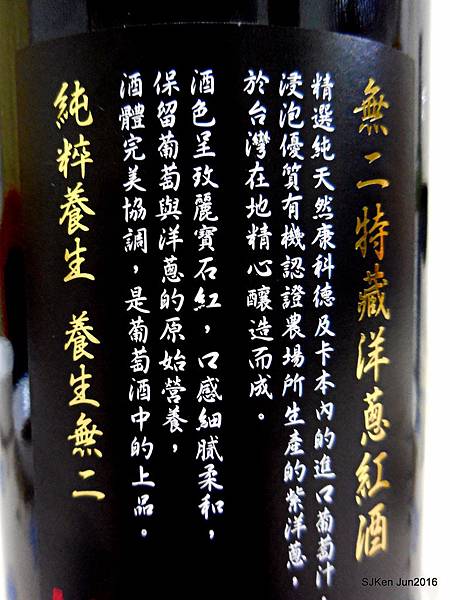 無二特藏洋蔥紅酒
精選純天然康科德及卡本內的進口葡萄汁，
浸泡優質有機認證農場所生產的紫洋蔥，
於台灣在地精心釀造而成。
酒色呈玫麗寶石紅，口感細膩柔和，
保留葡萄與洋蔥的原始營養，
酒體完美協調，是葡萄酒中的上品。
純粹養生 養生無二
SJKen Jun2016